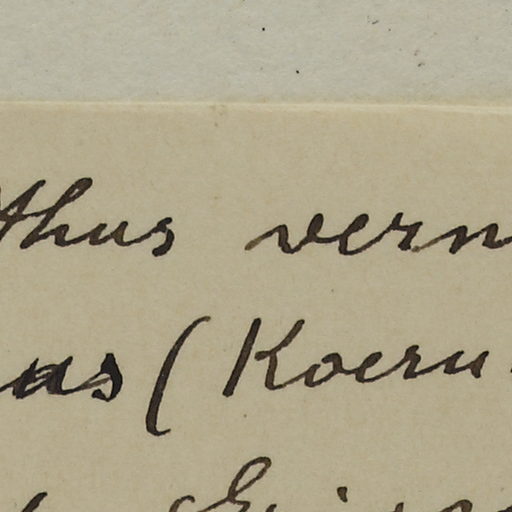 thus vern
as (Koern